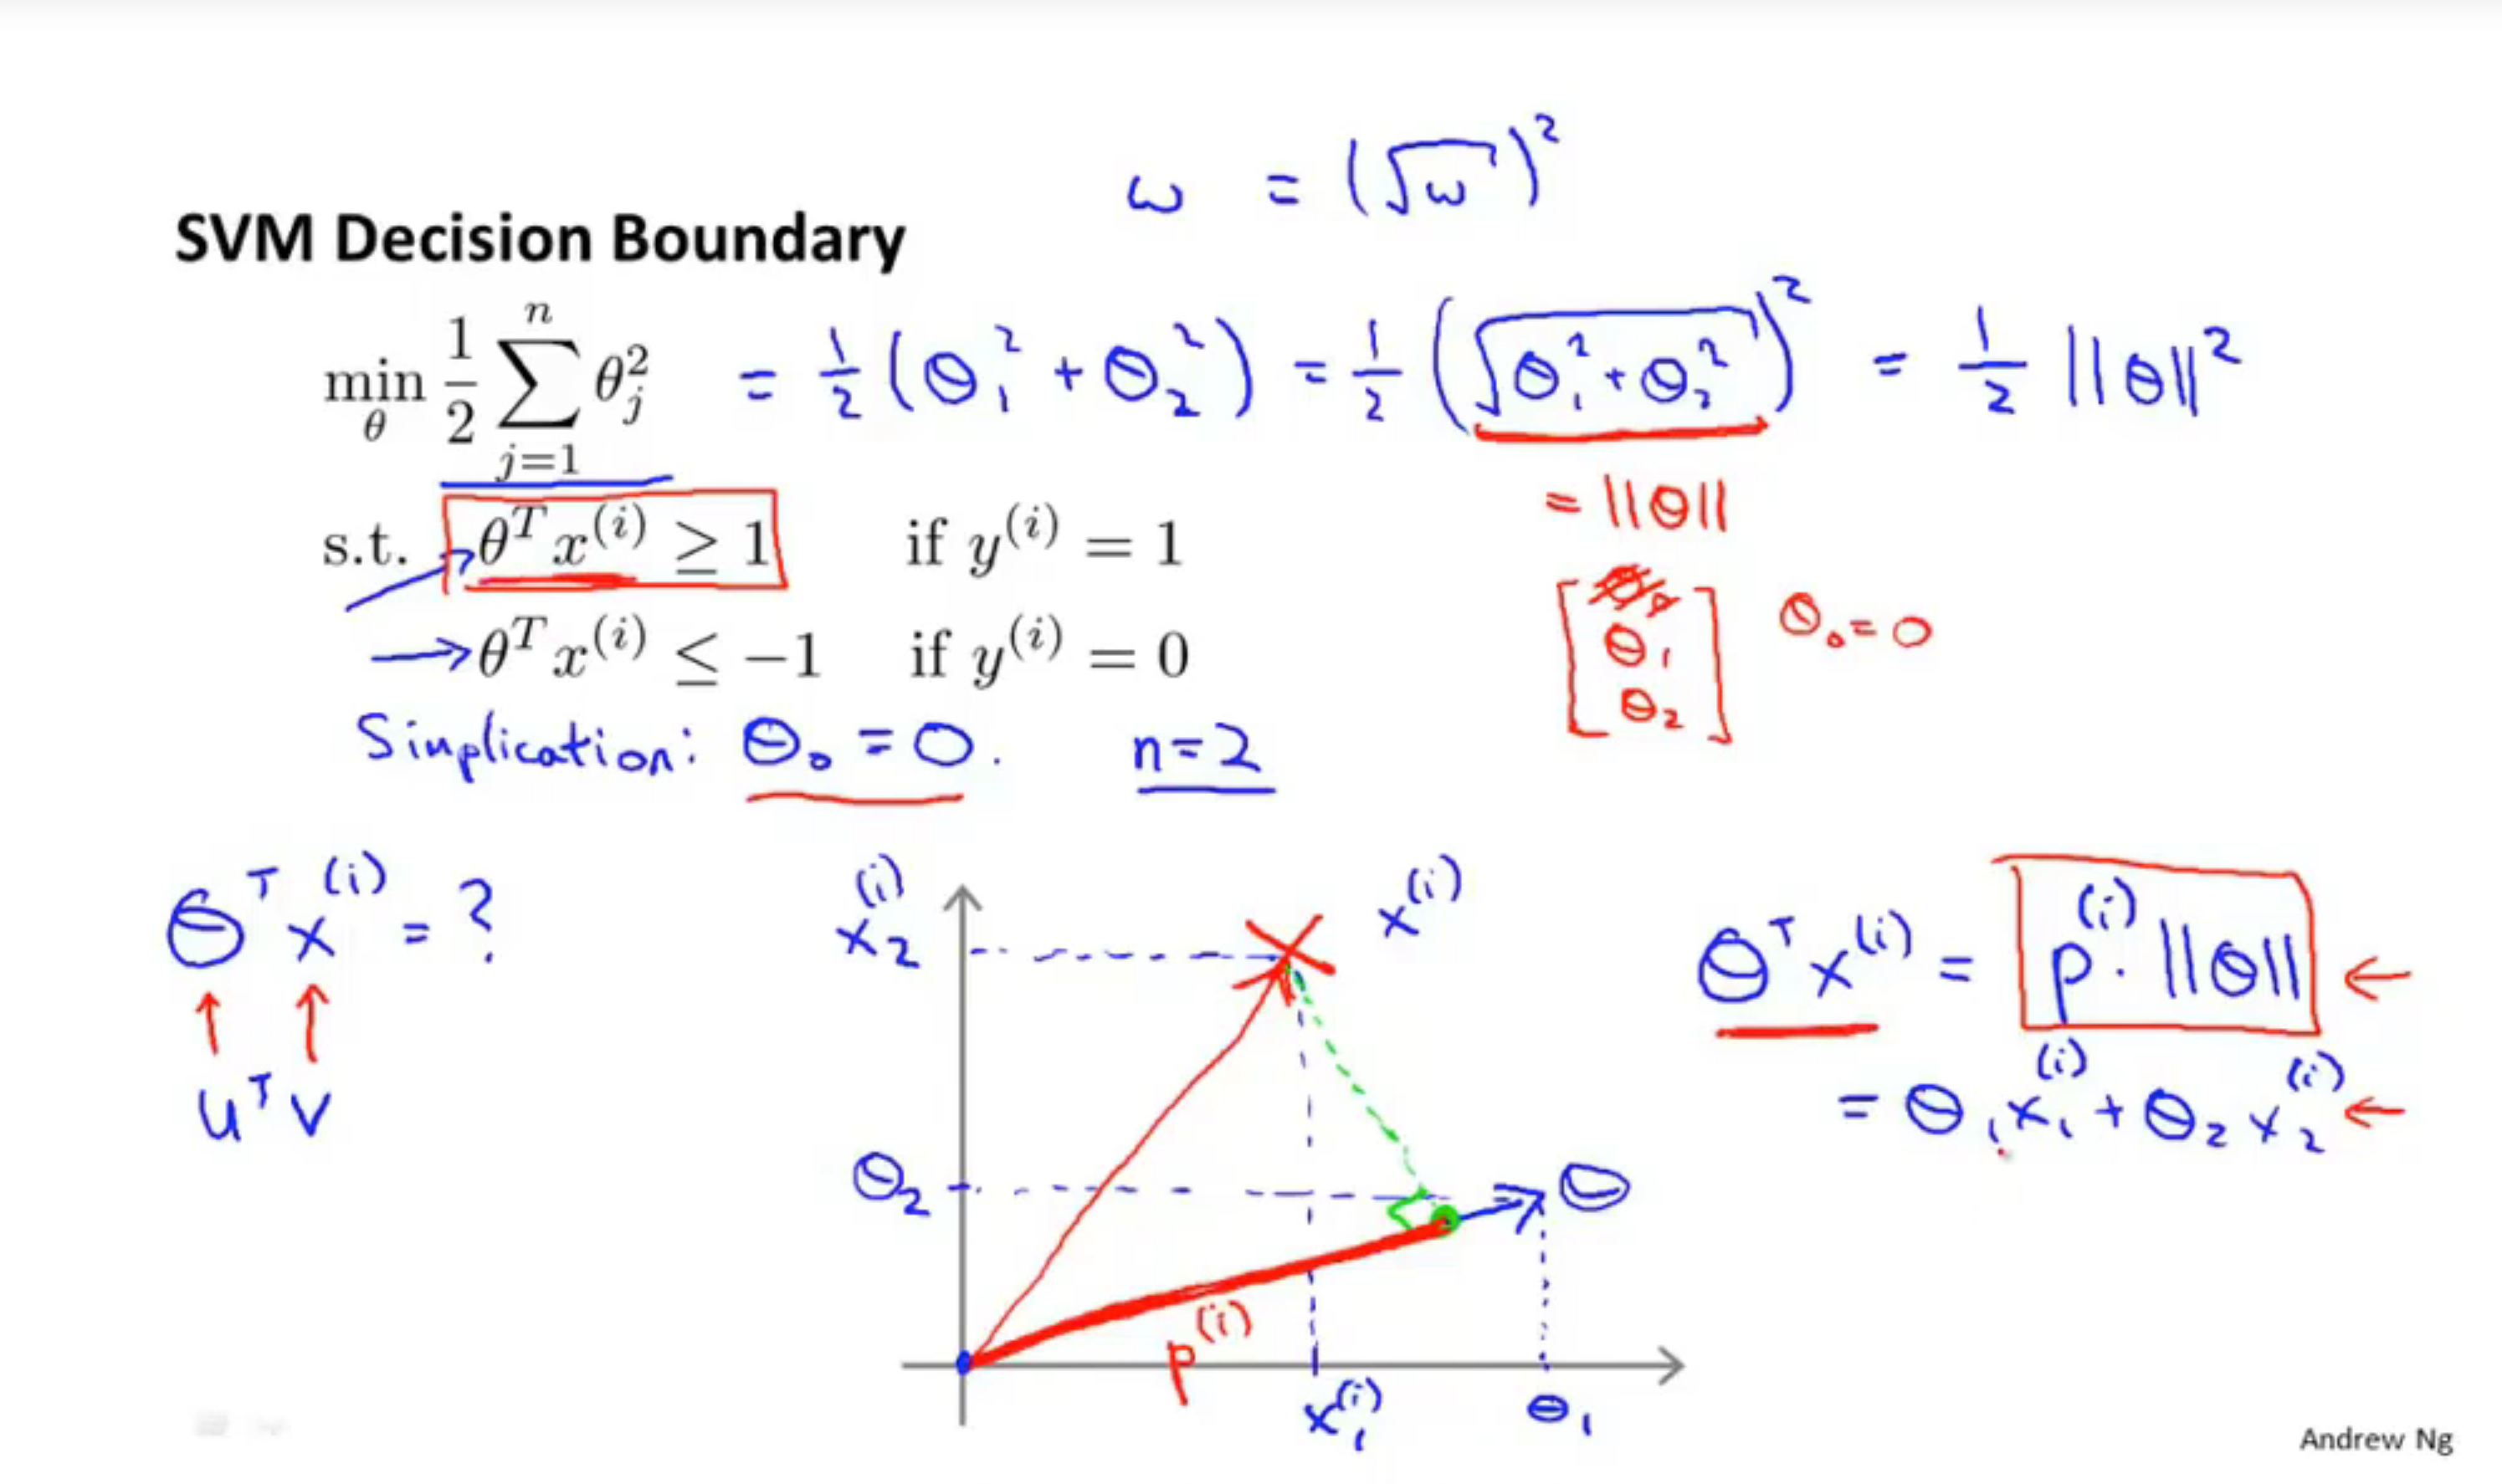 ω = (√ω)²
SVM Decision Boundary
min_θ 1/2 ∑_{j=1}^{n} θ_j² = 1/2 (θ₁² + θ₂²) = 1/2 (√(θ₁² + θ₂²))² = 1/2 ||θ||²
= ||θ||
s.t. θᵀx⁽ⁱ⁾ ≥ 1 if y⁽ⁱ⁾ = 1
θᵀx⁽ⁱ⁾ ≤ −1 if y⁽ⁱ⁾ = 0
[θ₀ θ₁ θ₂] θ₀ = 0
Simplication: θ₀ = 0. n=2
θᵀx⁽ⁱ⁾ = ?
uᵀv
x₂⁽ⁱ⁾
x⁽ⁱ⁾
θ₂
θ
p⁽ⁱ⁾
x₁⁽ⁱ⁾
θ₁
θᵀx⁽ⁱ⁾ = p⁽ⁱ⁾ · ||θ|| ←
= θ₁x₁⁽ⁱ⁾ + θ₂x₂⁽ⁱ⁾ ←
Andrew Ng